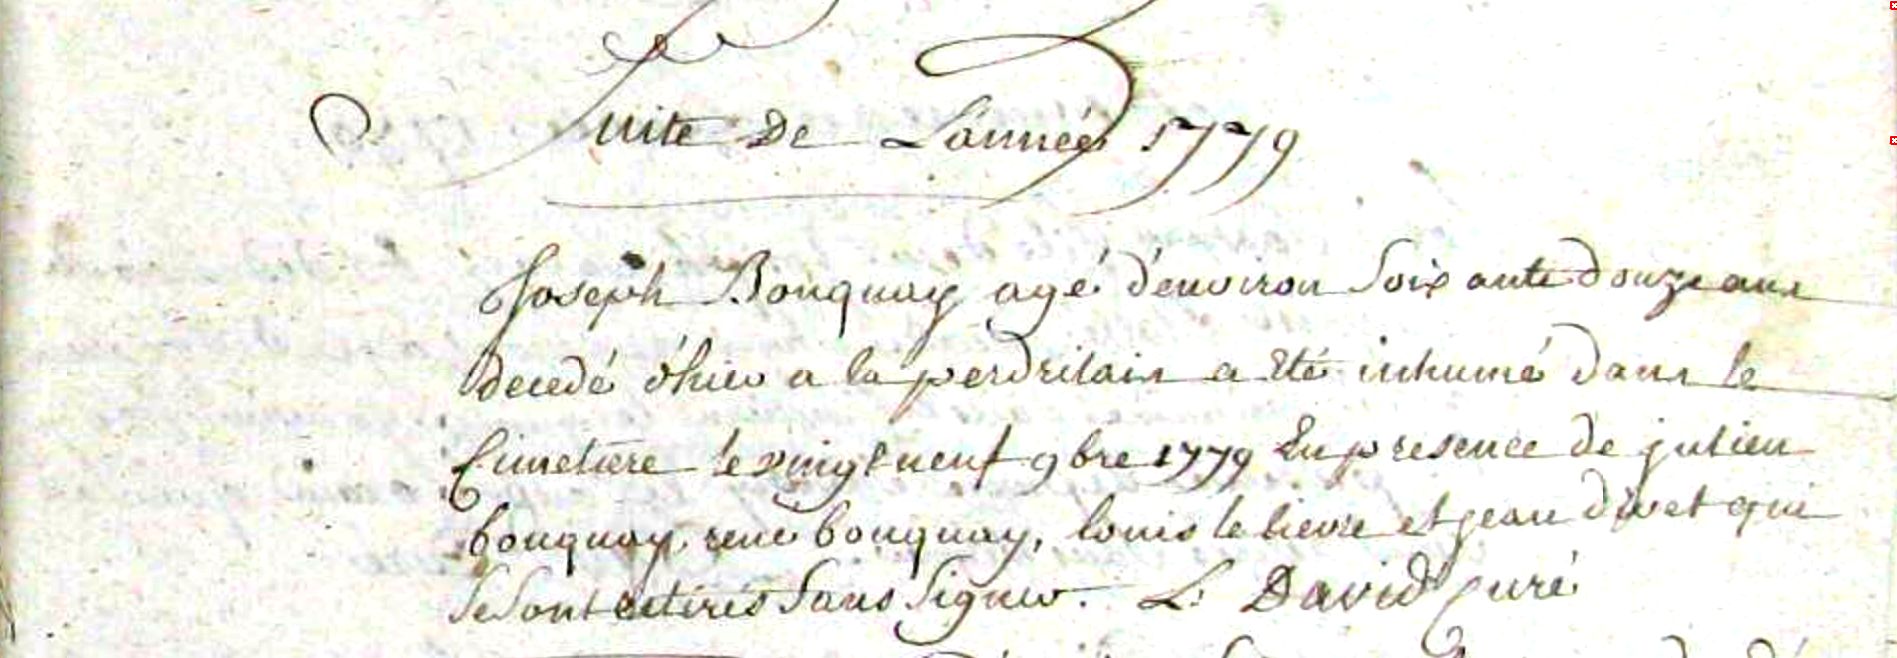 Suite de L'année 1779
Joseph Bouquay agé d'environ soixante douze ans
decedé d'hier a la perdrilais a eté inhumé dans le
Cimetiere le vingt neuf 9bre 1779 En presence de julien
bouquay, rené bouquay, louis le lievre et jean divet qui
se sont retirés sans signer. L. David Curé